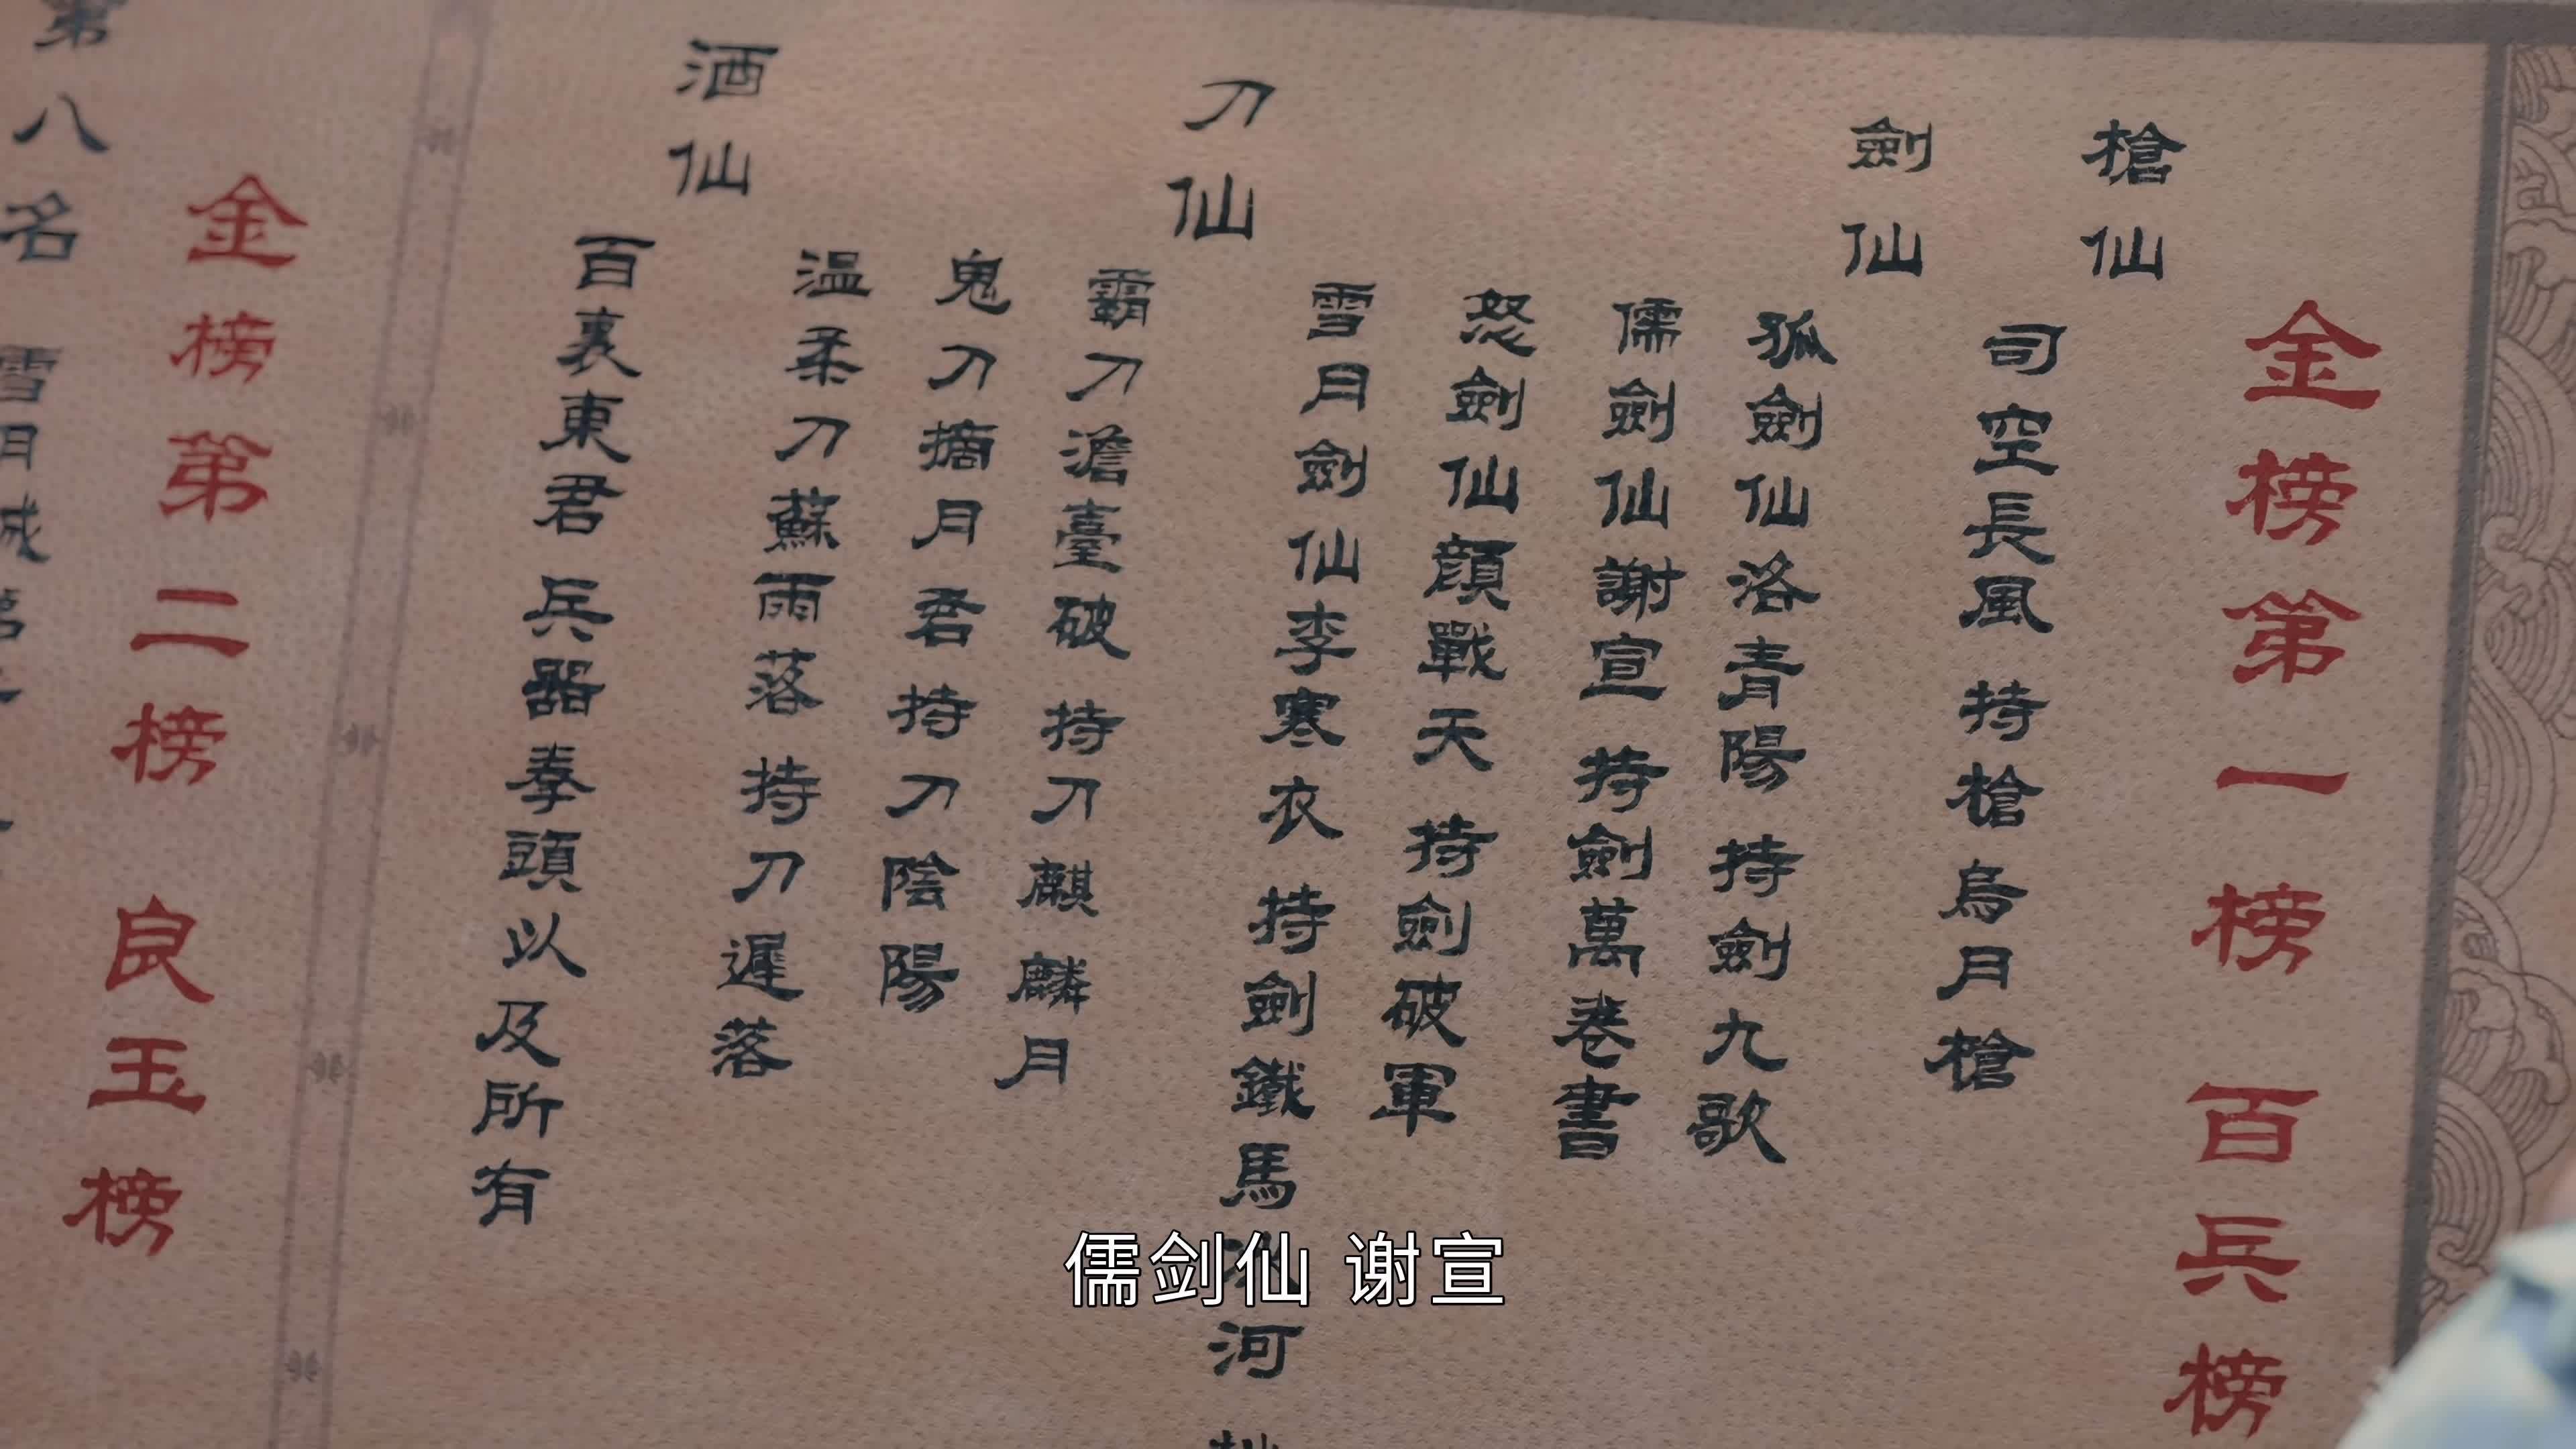 金榜第一榜 百兵榜
槍仙
司空長風 持槍烏月槍
劍仙
狐劍仙洛青陽 持劍九歌
儒劍仙謝宣 持劍萬卷書
怒劍仙顏戰天 持劍破軍
雪月劍仙李寒衣 持劍鐵馬冰河
刀仙
霸刀澹臺破 持刀麒麟月
鬼刀摘月君 持刀陰陽
温柔刀蘇雨落 持刀遲落
酒仙
百裏東君 兵器拳頭以及所有
金榜第二榜 良玉榜
第八名 雪月城
儒剑仙 谢宣